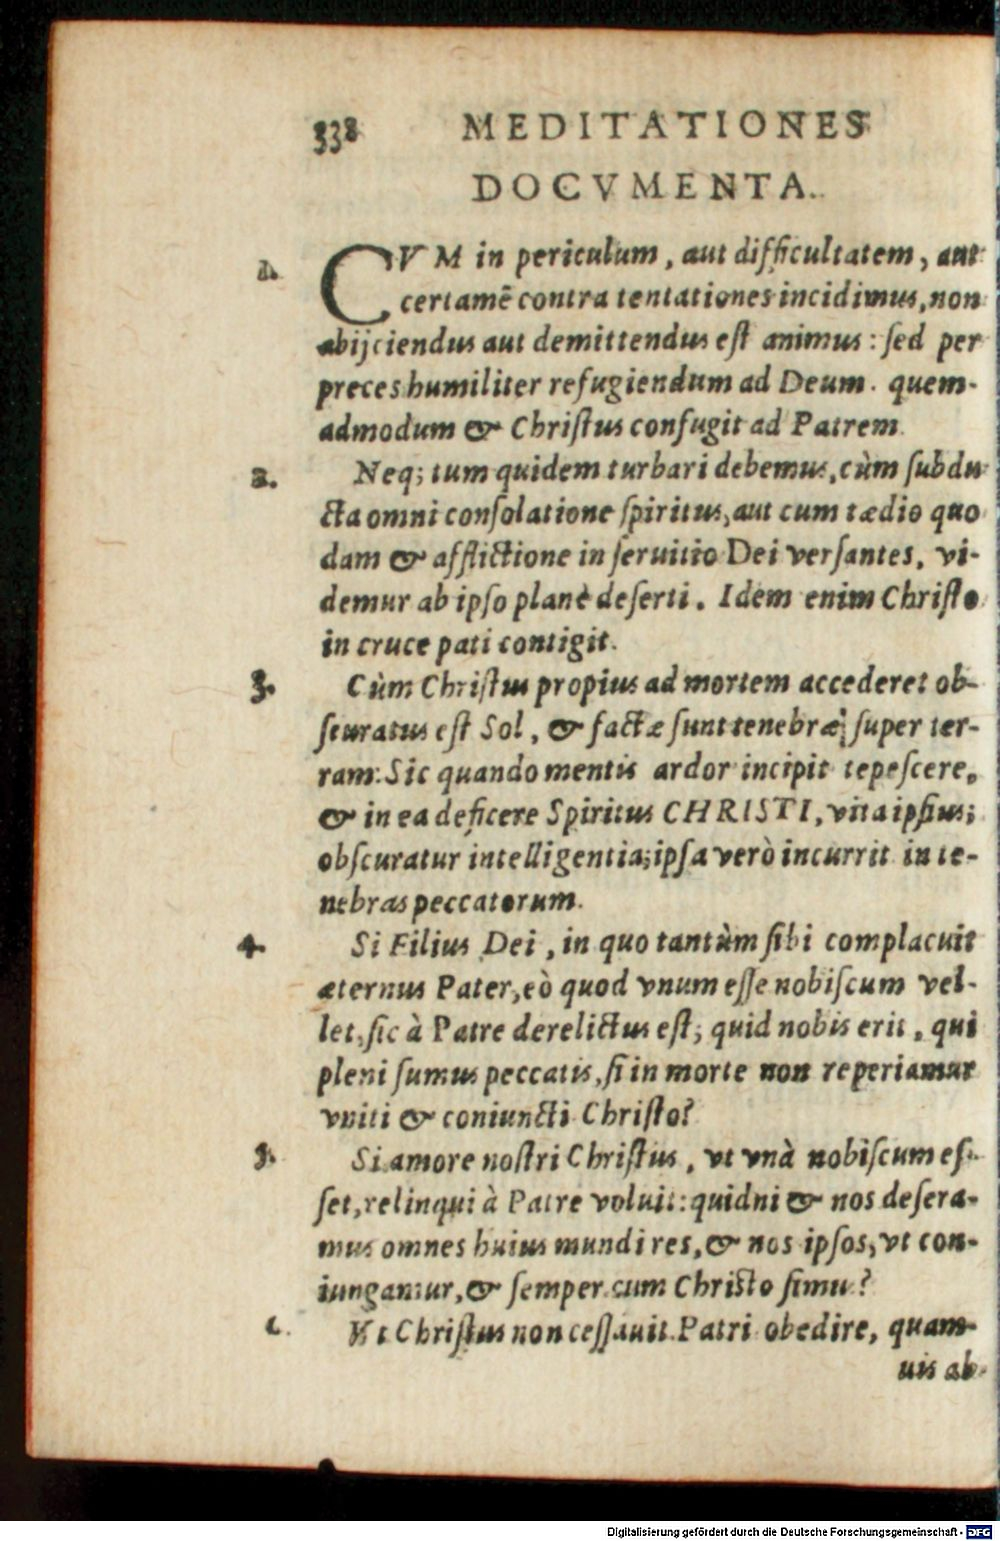 338 MEDITATIONES
DOCVMENTA.
1. CVM in periculum, aut difficultatem, aut
certamē contra tentationes incidimus, non
abijciendus aut demittendus eſt animus: ſed per
preces humiliter refugiendum ad Deum. quem-
admodum & Chriſtus confugit ad Patrem.
2. Neq; tum quidem turbari debemus, cùm ſubdu
cta omni conſolatione ſpiritus, aut cum tædio quo
dam & afflictione in ſeruitio Dei verſantes, vi-
demur ab ipſo planè deſerti. Idem enim Chriſto
in cruce pati contigit.
3. Cùm Chriſtus propius ad mortem accederet ob-
ſcuratus eſt Sol, & factæ ſunt tenebræ ſuper ter-
ram: Sic quando mentis ardor incipit tepeſcere,
& in ea deficere Spiritus CHRISTI, vita ipſius;
obſcuratur intelligentia; ipſa verò incurrit in te-
nebras peccatorum.
4. Si Filius Dei, in quo tantùm ſibi complacuit
æternus Pater, eò quod vnum eſſe nobiſcum vel-
let, ſic à Patre derelictus eſt; quid nobis erit, qui
pleni ſumus peccatis, ſi in morte non reperiamur
vniti & coniuncti Chriſto?
5. Si amore noſtri Chriſtus, vt vnà nobiſcum eſ-
ſet, relinqui à Patre voluit: quidni & nos deſera-
mus omnes huius mundi res, & nos ipſos, vt con-
iungamur, & ſemper cum Chriſto ſimus?
Vt Chriſtus non ceſſauit Patri obedire, quam-
uis ab-
Digitalisierung gefördert durch die Deutsche Forschungsgemeinschaft - DFG